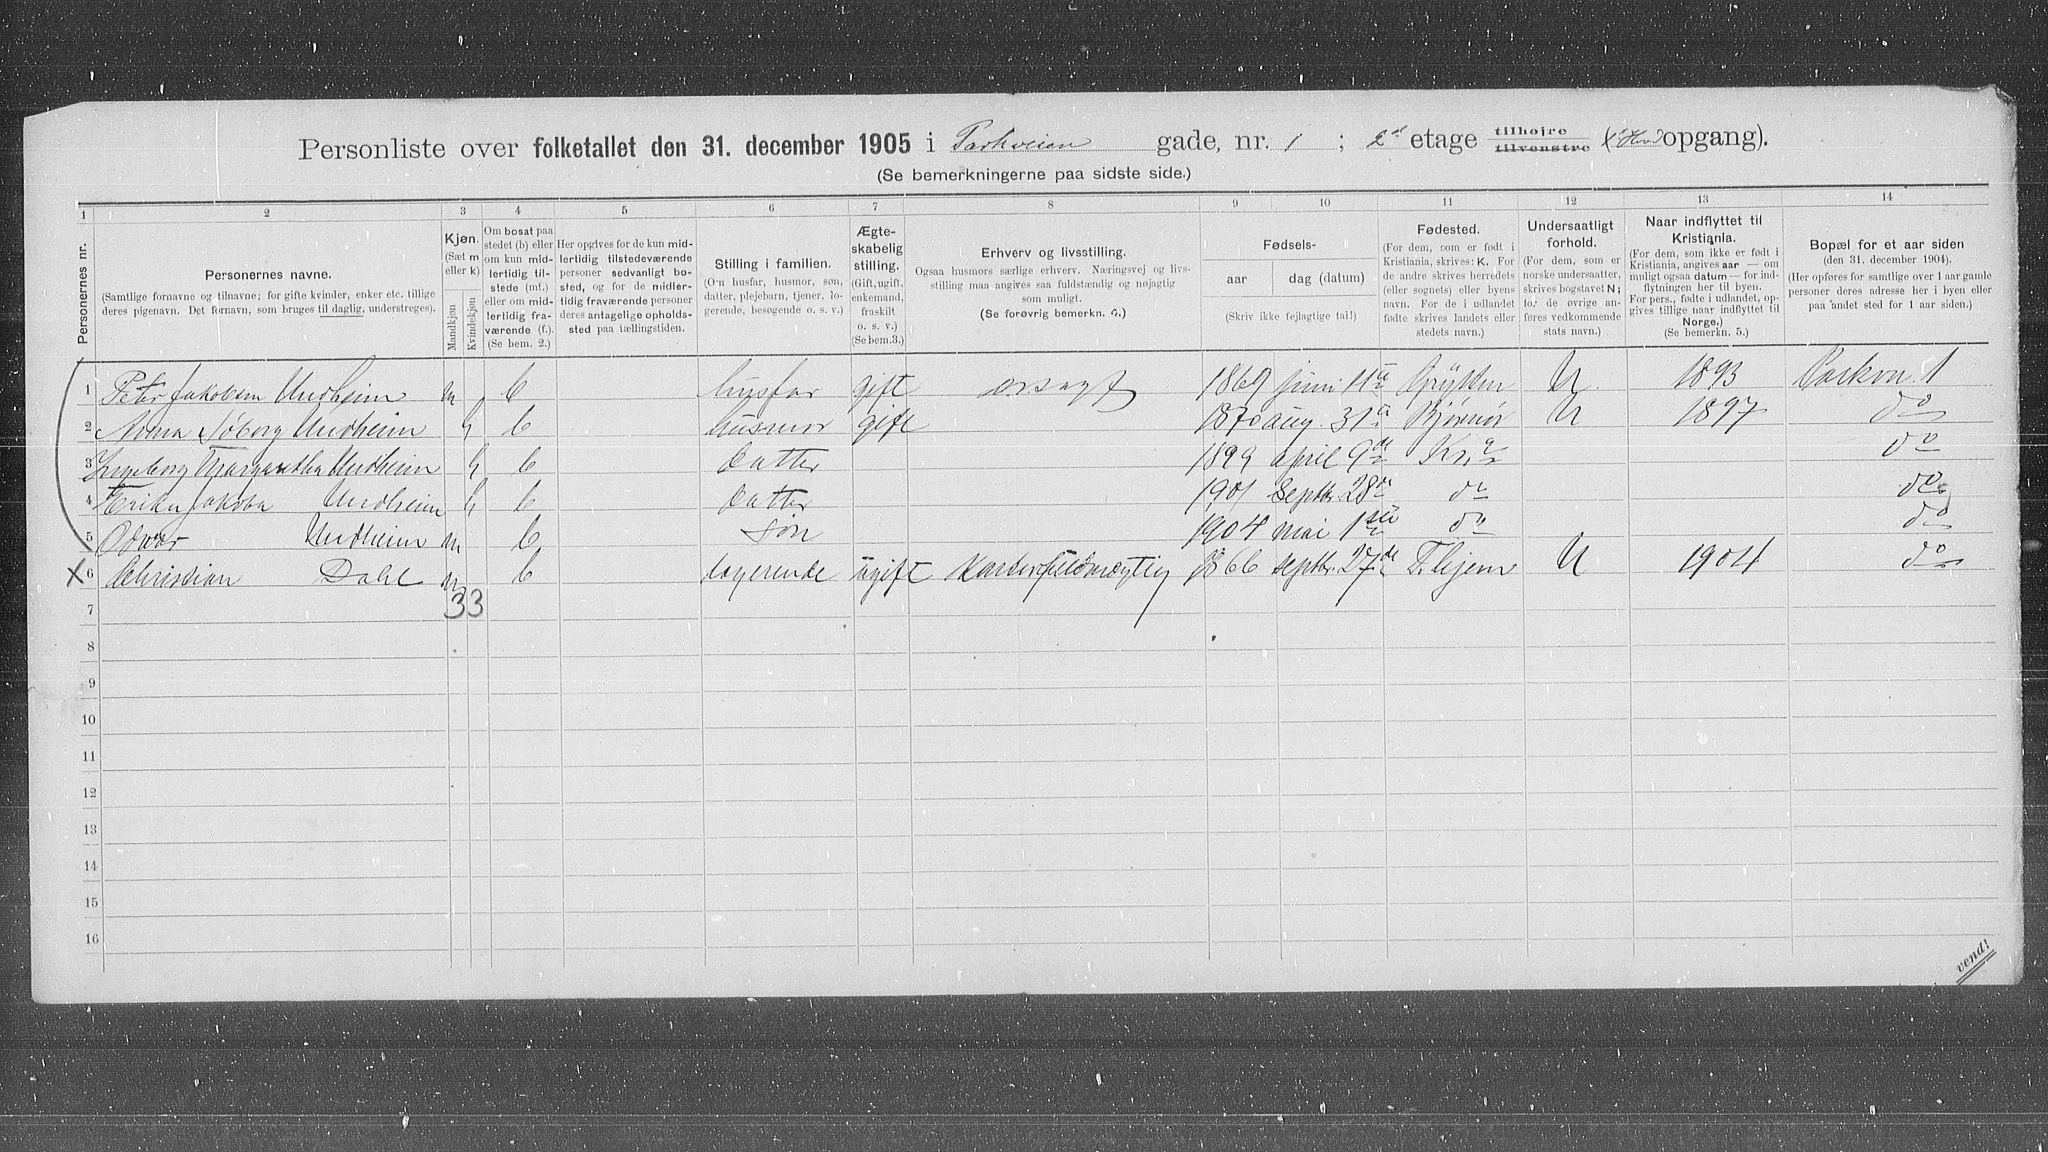 Personliste over folketallet den 31. december 1905 i Parkveien gade, nr. 1 ; 2den etage tilhøjre tilvenstre ( opgang).
(Se bemerkningerne paa sidste side.)
1 2 3 4 5 6 7 8 9 10 11 12 13 14
Personernes nr.
Personernes navne.
(Samtlige fornavne og tilnavne; for gifte kvinder, enker etc. tillige deres pigenavn. Det fornavn, som bruges til daglig, understreges).
Kjøn.
(Sæt m eller k)
Mandkjøn
Kvindekjøn
Om bosat paa stedet (b) eller om kun midlertidig tilstede (mt.) eller om midlertidig fraværende (f.). (Se bem. 2.)
Her opgives for de kun midlertidig tilstedeværende personer sedvanligt bosted, og for de midlertidig fraværende personer deres antagelige opholdssted paa tællingstiden.
Stilling i familien.
(O: husfar, husmor, søn, datter, plejebarn, tjener, logerende, besøgende o. s. v.)
Ægteskabelig stilling.
(Gift, ugift, enkemand, fraskilt o. s. v.) (Se bem.3.)
Erhverv og livsstilling.
Ogsaa husmors særlige erhverv. Næringsvej og livsstilling maa angives saa fuldstændig og nøjagtig som muligt.
(Se forøvrig bemerkn. 4.)
Fødsels-
aar
dag (datum)
(Skriv ikke fejlagtige tal!)
Fødested.
(For dem, som er født i Kristiania, skrives: K. For de andre skrives herredets (eller sognets) eller byens navn. For de i udlandet fødte skrives landets eller stedets navn.)
Undersaatligt forhold.
(For dem, som er norske undersaatter, skrives bogstavet N; for de øvrige anføres vedkommende stats navn.)
Naar indflyttet til Kristiania.
(For dem, som ikke er født i Kristiania, angives aar — om muligt ogsaa datum — for indflytningen her til byen. For pers., fødte i udlandet, opgives tillige naar indflyttet til Norge.)
(Se bemerkn. 5.)
Bopæl for et aar siden
(den 31. december 1904.)
(Her opføres for samtlige over 1 aar gamle personer deres adresse her i byen eller paa andet sted for 1 aar siden.)
1 Peter Jakobsen Undheim m b husfar gift 1869 juni 11te Grytten N 1893 Parkvn. 1
2 Anna Søborg Undheim k b husmor gift 1870 aug. 31te Bjørnør N 1897 do
3 Ingeborg Margaretha Undheim k b datter 1899 april 9de Kr.a do
4 Erika Jakoba Undheim k b datter 1901 septbr. 28de do do
5 Odvar Undheim m b søn 1904 mai 1ste do do
X 6 Christian Dahl m b logerende ugift 1866 septbr. 27de N 1904 do
33
7
8
9
10
11
12
13
14
15
16
vend!